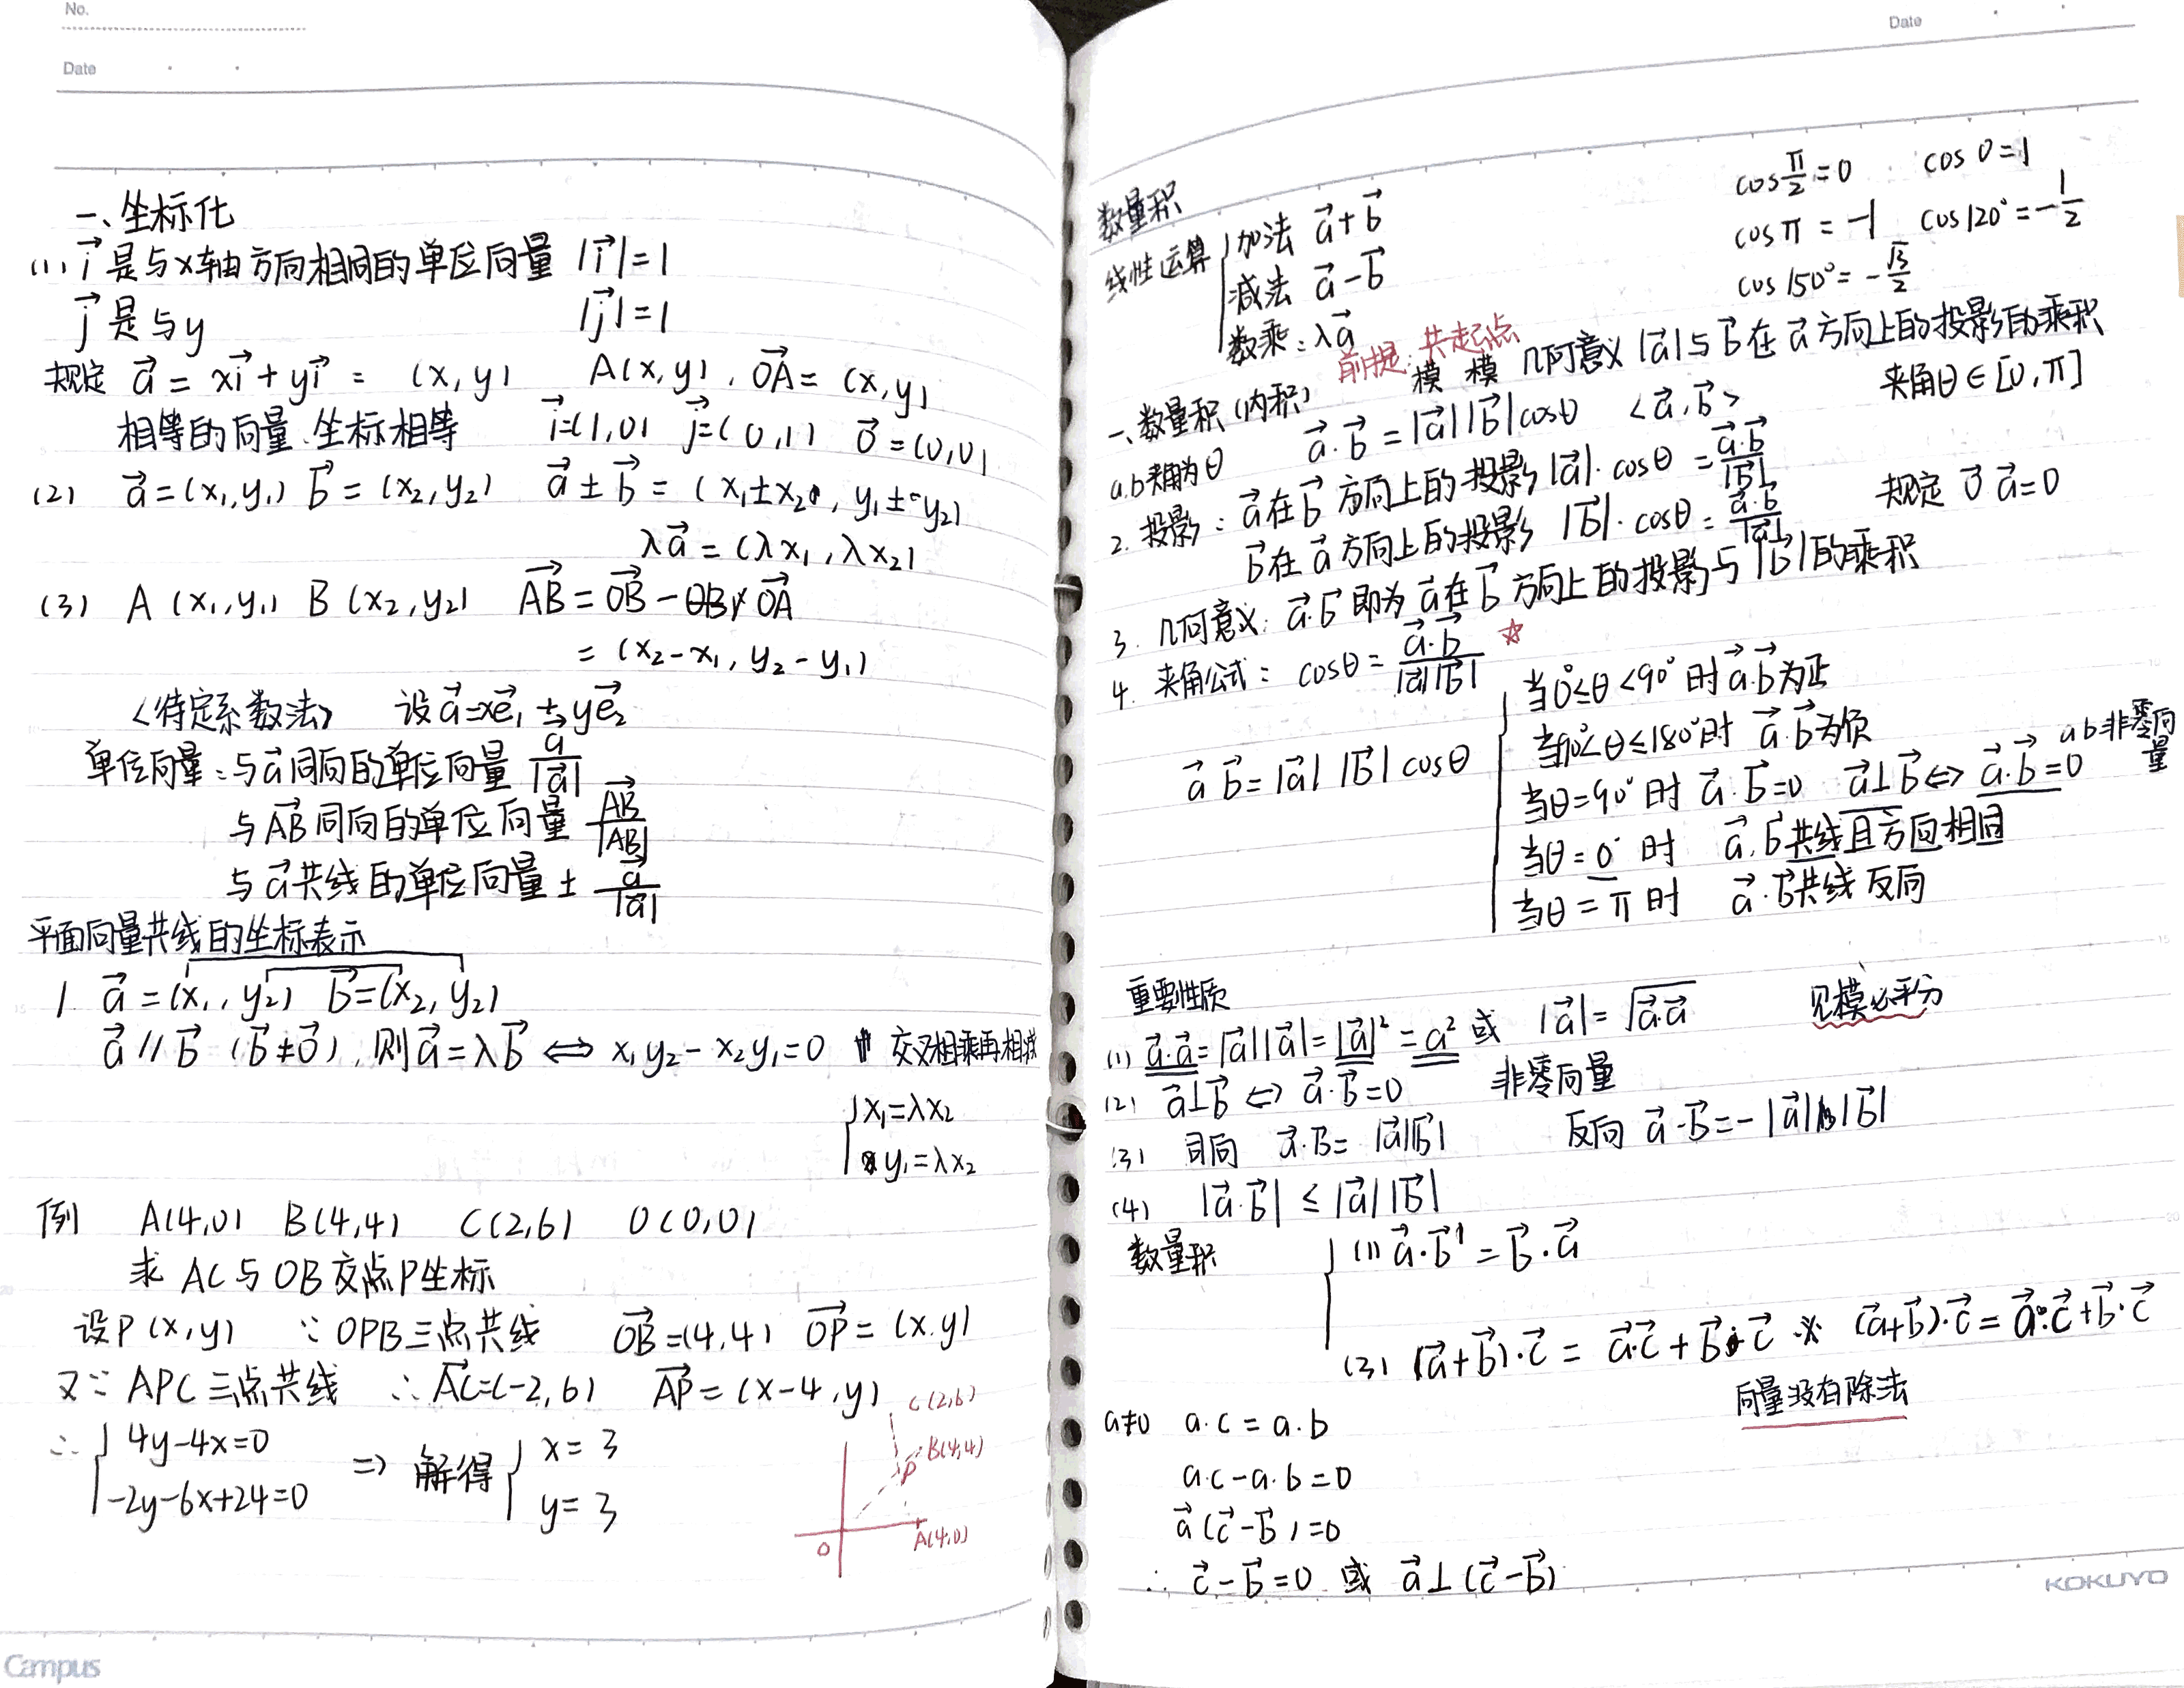 No.
Date
一、坐标化
(1) i⃗是与x轴方向相同的单位向量 |i⃗|=1
j⃗是与y |j⃗|=1
规定 a⃗ = xi⃗ + yi⃗ = (x,y) A(x,y), OA⃗ = (x,y)
相等的向量、坐标相等 i⃗=(1,0) j⃗=(0,1) 0⃗=(0,0)
(2) a⃗=(x₁,y₁) b⃗=(x₂,y₂) a⃗±b⃗ = (x₁±x₂, y₁±y₂)
λa⃗ = (λx₁, λx₂)
(3) A(x₁,y₁) B(x₂,y₂) AB⃗ = OB⃗ - OA⃗
= (x₂-x₁, y₂-y₁)
<待定系数法> 设a⃗=xe⃗₁ + ye⃗₂
单位向量:与a⃗同向的单位向量 a⃗/|a⃗|
与AB⃗同向的单位向量 AB⃗/|AB⃗|
与a⃗共线的单位向量 ± a⃗/|a⃗|
平面向量共线的坐标表示
1. a⃗=(x₁,y₂) b⃗=(x₂,y₂)
a⃗//b⃗ (b⃗≠0⃗), 则a⃗=λb⃗ ⇔ x₁y₂-x₂y₁=0 交叉相乘再相减
{ x₁=λx₂
y₁=λx₂
例 A(4,0) B(4,4) C(2,6) O(0,0)
求 AC与OB交点P坐标
设P(x,y) ∵OPB三点共线 OB⃗=(4,4) OP⃗=(x.y)
又∵APC三点共线 ∴AC⃗=(-2,6) AP⃗=(x-4,y)
∴ { 4y-4x=0
-2y-6x+24=0
⇒ 解得 { x=3
y=3
C(2,6)
B(4,4)
P
O
A(4,0)
Campus
Date
cos π/2=0 cos0=1
cosπ=-1 cos120°=-1/2
cos150°=-√3/2
数量积
线性运算 { 加法 a⃗+b⃗
减法 a⃗-b⃗
数乘:λa⃗
前提:共起点
一、数量积(内积) 模 模 几何意义 |a⃗|与b⃗在a⃗方向上的投影的乘积
a.b夹角为θ a⃗·b⃗=|a⃗||b⃗|cosθ <a⃗,b⃗> 夹角θ∈[0,π]
2. 投影:a⃗在b⃗方向上的投影|a⃗|·cosθ=a⃗·b⃗/|b⃗|
b⃗在a⃗方向上的投影 |b⃗|·cosθ=a⃗·b⃗/|a⃗| 规定 0⃗ a⃗=0
3. 几何意义:a⃗·b⃗即为a⃗在b⃗方向上的投影与|b⃗|的乘积
4. 夹角公式: cosθ=a⃗·b⃗/|a⃗||b⃗| ☆
a⃗ b⃗=|a⃗| |b⃗| cosθ
{ 当0°≤θ<90°时a⃗·b⃗为正
当90°<θ≤180°时 a⃗·b⃗为负
当θ=90°时 a⃗·b⃗=0 a⃗⊥b⃗⇔a⃗·b⃗=0 ab非零向量
当θ=0°时 a⃗,b⃗共线且方向相同
当θ=π时 a⃗·b⃗共线反向
重要性质
(1) a⃗·a⃗=|a⃗||a⃗|=|a⃗|²=a² 或 |a⃗|=√a⃗·a⃗ 见模必平方
(2) a⃗⊥b⃗ ⇔ a⃗·b⃗=0 非零向量
(3) 同向 a⃗·B=|a⃗||b⃗| 反向 a⃗·b⃗=-|a⃗||b⃗|
(4) |a⃗·b⃗| ≤ |a⃗||b⃗|
数量积 { (1) a⃗·b⃗=b⃗·a⃗
(3) (a⃗+b⃗)·c⃗ = a⃗·c⃗+b⃗·c⃗ ※ (a⃗+b⃗)·c⃗=a⃗·c⃗+b⃗·c⃗
向量没有除法
a≠0 a·c=a·b
a·c-a·b=0
a⃗(c⃗-b⃗)=0
∴ c⃗-b⃗=0 或 a⃗⊥(c⃗-b⃗)
KOKUYO